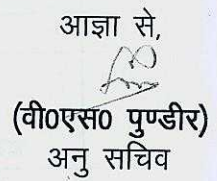 आज्ञा से,
(वी0एस0 पुण्डीर)
अनु सचिव